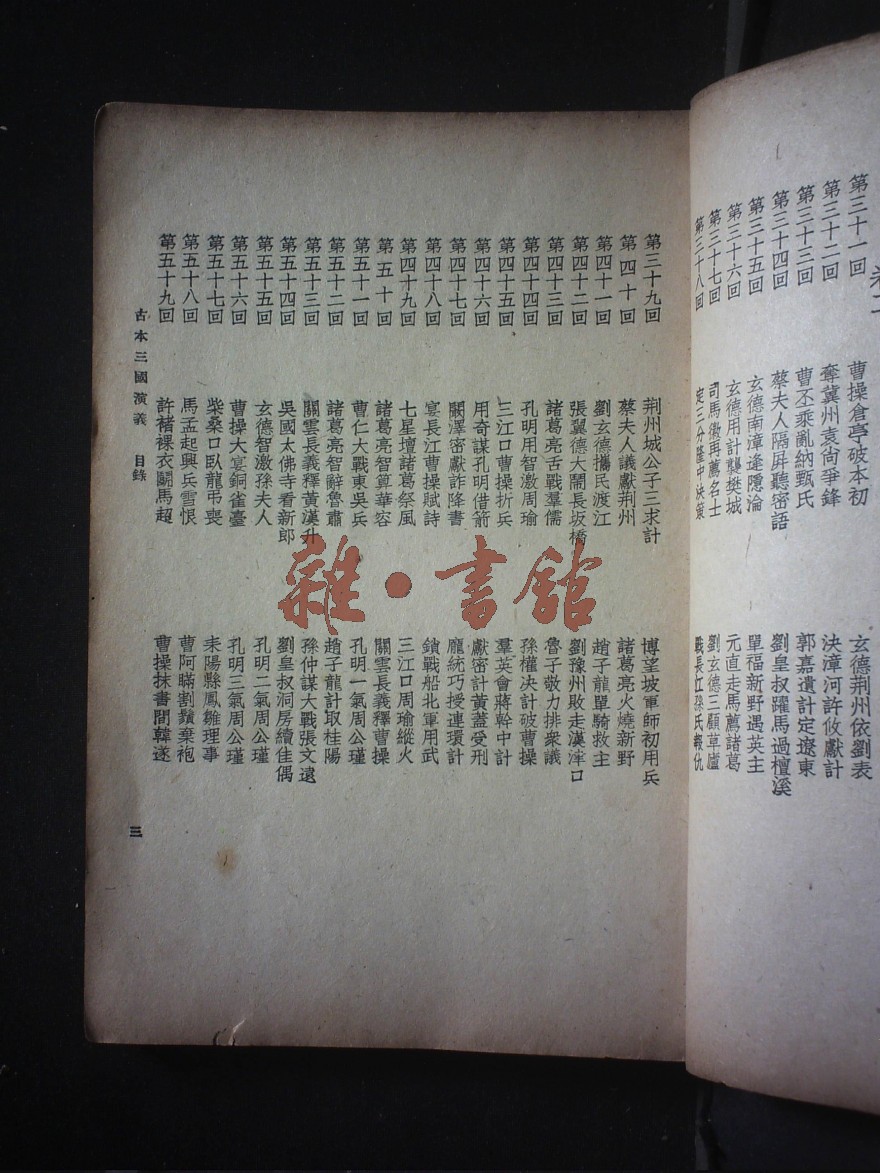 卷二
第三十一回 曹操倉亭破本初 玄德荆州依劉表
第三十二回 奪冀州袁尙爭鋒 決漳河許攸獻計
第三十三回 曹丕乘亂納甄氏 郭嘉遺計定遼東
第三十四回 蔡夫人隔屏聽密語 劉皇叔躍馬過檀溪
第三十五回 玄德南漳逢隱淪 單福新野遇英主
第三十六回 玄德用計襲樊城 元直走馬薦諸葛
第三十七回 司馬徽再薦名士 劉玄德三顧草廬
第三十八回 定三分隆中決策 戰長江孫氏報仇
第三十九回 荆州城公子三求計 博望坡軍師初用兵
第四十回 蔡夫人議獻荆州 諸葛亮火燒新野
第四十一回 劉玄德攜民渡江 趙子龍單騎救主
第四十二回 張翼德大鬧長坂橋 劉豫州敗走漢津口
第四十三回 諸葛亮舌戰羣儒 魯子敬力排衆議
第四十四回 孔明用智激周瑜 孫權決計破曹操
第四十五回 三江口曹操折兵 羣英會蔣幹中計
第四十六回 用奇謀孔明借箭 獻密計黃蓋受刑
第四十七回 闞澤密獻詐降書 龐統巧授連環計
第四十八回 宴長江曹操賦詩 鎖戰船北軍用武
第四十九回 七星壇諸葛祭風 三江口周瑜縱火
第五十回 諸葛亮智算華容 關雲長義釋曹操
第五十一回 曹仁大戰東吳兵 孔明一氣周公瑾
第五十二回 諸葛亮智辭魯肅 趙子龍計取桂陽
第五十三回 關雲長義釋黃漢升 孫仲謀大戰張文遠
第五十四回 吳國太佛寺看新郎 劉皇叔洞房續佳偶
第五十五回 玄德智激孫夫人 孔明二氣周公瑾
第五十六回 曹操大宴銅雀臺 孔明三氣周公瑾
第五十七回 柴桑口臥龍弔喪 耒陽縣鳳雛理事
第五十八回 馬孟起興兵雪恨 曹阿瞞割鬚棄袍
第五十九回 許褚裸衣鬭馬超 曹操抹書間韓遂
古本三國演義 目錄
三
雜·書館